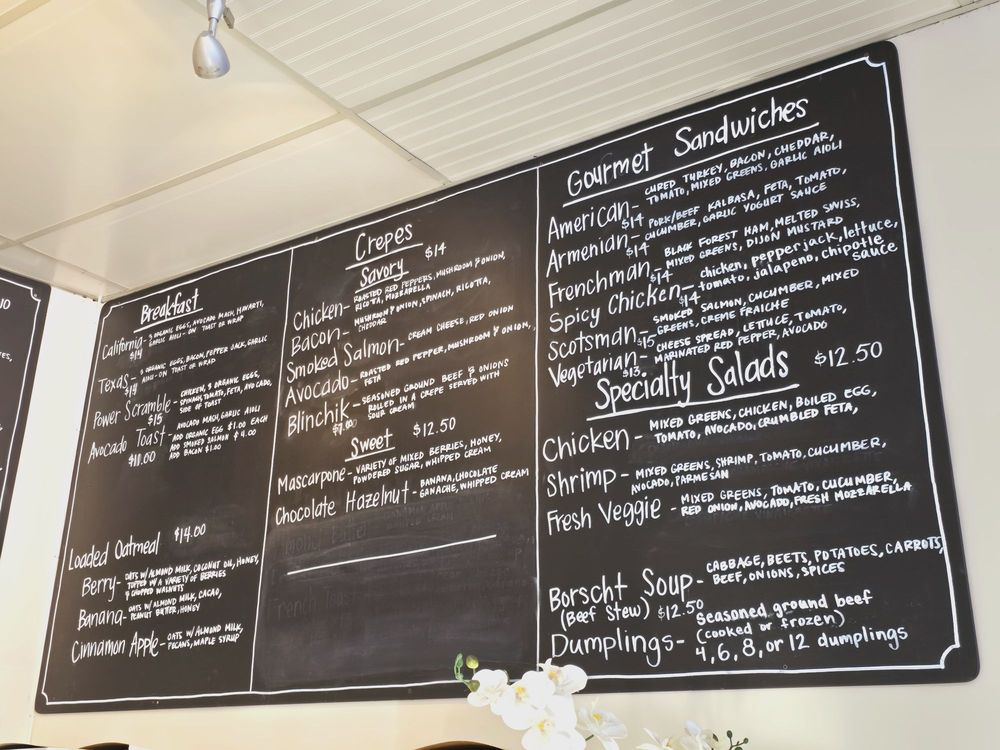 Breakfast
California - 3 ORGANIC EGGS, AVOCADO MASH, HAVARTI,
$14 GARLIC AIOLI - ON TOAST OR WRAP
Texas - 3 ORGANIC EGGS, BACON, PEPPER JACK, GARLIC
$14 AIOLI - ON TOAST OR WRAP
Power Scramble - CHICKEN, 3 ORGANIC EGGS,
$15 SPINACH, TOMATO, FETA, AVOCADO,
SIDE OF TOAST
Avocado Toast - AVOCADO MASH, GARLIC AIOLI
$11.00 ADD ORGANIC EGG $1.00 EACH
ADD SMOKED SALMON $4.00
ADD BACON $1.00
Loaded Oatmeal $14.00
Berry - OATS W/ ALMOND MILK, COCONUT OIL, HONEY,
TOPPED W/ A VARIETY OF BERRIES
& CHOPPED WALNUTS
Banana - OATS W/ ALMOND MILK, CACAO,
PEANUT BUTTER, HONEY
Cinnamon Apple - OATS W/ ALMOND MILK,
PECANS, MAPLE SYRUP
Crepes
Savory $14
Chicken - ROASTED RED PEPPERS, MUSHROOM & ONION,
RICOTTA, MOZZARELLA
Bacon - MUSHROOM & ONION, SPINACH, RICOTTA,
CHEDDAR
Smoked Salmon - CREAM CHEESE, RED ONION
Avocado - ROASTED RED PEPPER, MUSHROOM & ONION,
FETA
Blinchik - SEASONED GROUND BEEF & ONIONS
$7.00 ROLLED IN A CREPE SERVED WITH
SOUR CREAM
Sweet $12.50
Mascarpone - VARIETY OF MIXED BERRIES, HONEY,
POWDERED SUGAR, WHIPPED CREAM
Chocolate Hazelnut - BANANA, CHOCOLATE
GANACHE, WHIPPED CREAM
Gourmet Sandwiches
American - CURED TURKEY, BACON, CHEDDAR,
$14 TOMATO, MIXED GREENS, GARLIC AIOLI
Armenian - PORK/BEEF KALBASA, FETA, TOMATO,
$14 CUCUMBER, GARLIC YOGURT SAUCE
Frenchman - BLACK FOREST HAM, MELTED SWISS,
$14 MIXED GREENS, DIJON MUSTARD
Spicy Chicken - chicken, pepperjack, lettuce,
$14 tomato, jalapeno, chipotle
sauce
Scotsman - SMOKED SALMON, CUCUMBER, MIXED
$15 GREENS, CREME FRAICHE
Vegetarian - CHEESE SPREAD, LETTUCE, TOMATO,
$13. MARINATED RED PEPPER, AVOCADO
Specialty Salads $12.50
Chicken - MIXED GREENS, CHICKEN, BOILED EGG,
TOMATO, AVOCADO, CRUMBLED FETA,
Shrimp - MIXED GREENS, SHRIMP, TOMATO, CUCUMBER,
AVOCADO, PARMESAN
Fresh Veggie - MIXED GREENS, TOMATO, CUCUMBER,
RED ONION, AVOCADO, FRESH MOZZARELLA
Borscht Soup - CABBAGE, BEETS, POTATOES, CARROTS,
BEEF, ONIONS, SPICES
(Beef Stew) $12.50
Dumplings - Seasoned ground beef
(cooked or frozen)
4, 6, 8, or 12 dumplings